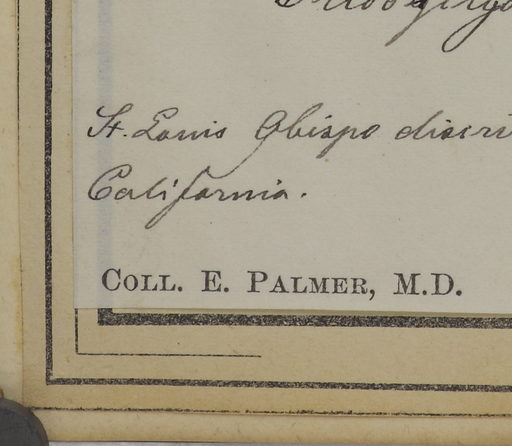 St. Louis Obispo
California.
COLL. E. PALMER, M.D.